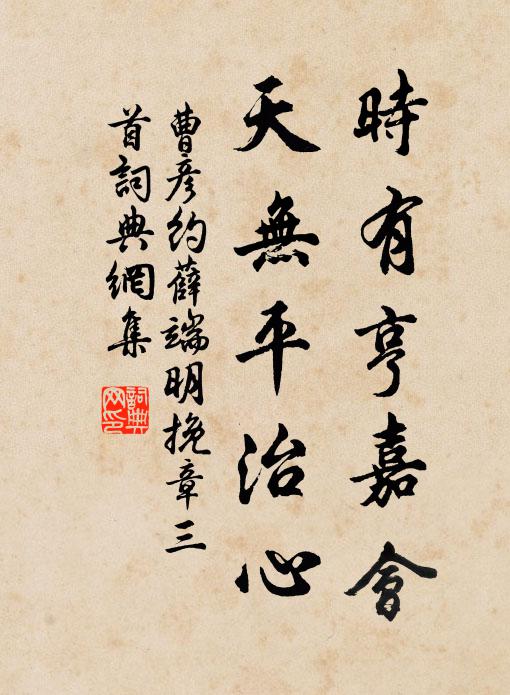 時有亨嘉會
天無平治心
曹彥約薛端明挽章三
首詞典網集
詞典网印